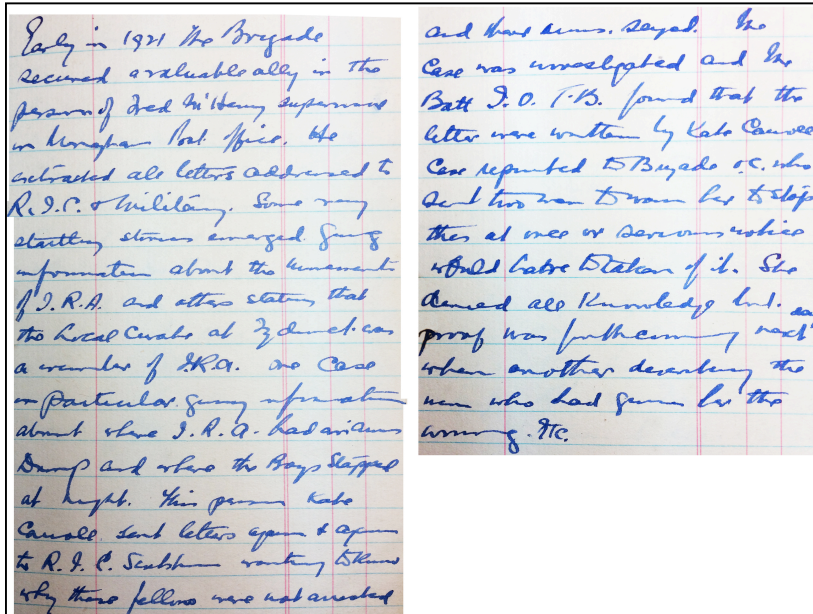 Early in 1921 The Brigade
secured a valuable ally in the
person of Fred McHenry supervisor
in Monaghan Post Office. He
extracted all letters addressed to
R.I.C. & Military. Some very
startling stories emerged. Giving
information about the movements
of I.R.A. and others stating that
the Local Curate at Tydavnet was
a member of I.R.A. one Case
in particular giving information
about where I.R.A. had an arms
Dump and where the Boys stopped
at night. This person Kate
Carroll sent letters again & again
to R.I.C. Scotstown wanting to know
why these fellows were not arrested
and their arms seized. The
Case was investigated and the
Batt I.O. T.B. found that the
letter were written by Kate Carroll
Case reported to Brigade O.C. who
sent two men to warn her to stop
this at once or serious notice
would have to taken of it. She
denied all Knowledge but
proof was forthcoming next
when another describing the
men who had given her the
warning. Etc.